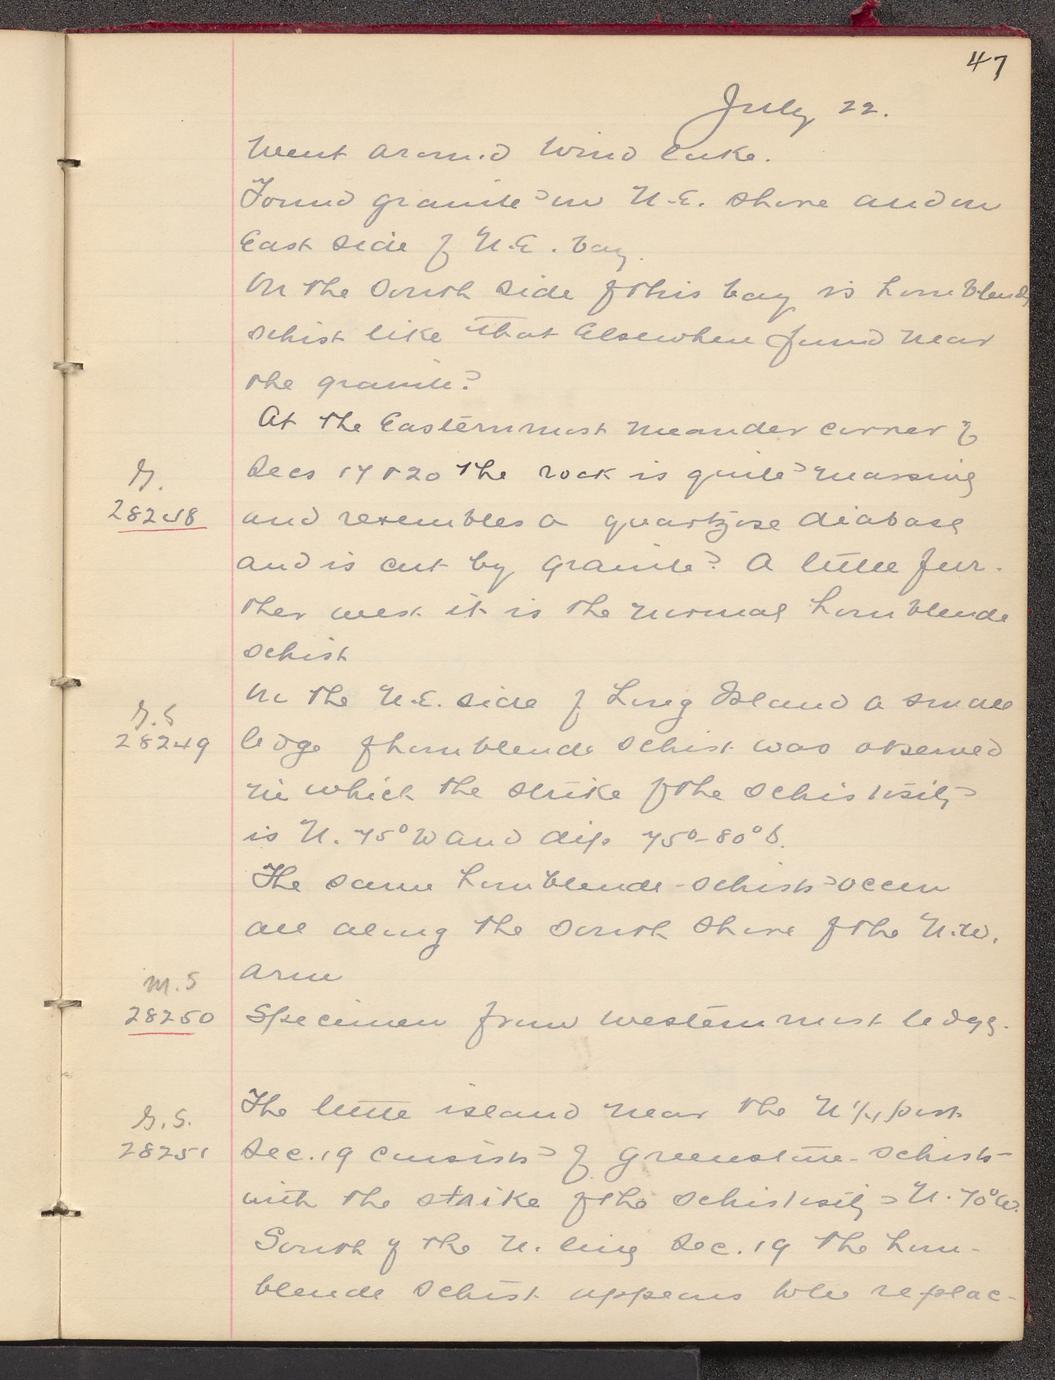 47
July 22.
Went around Wind Lake.
Found granite on N.E. shore and on
East side of N.E. bay.
On the South side of this bay is hornblende
schist like that elsewhere found near
the granite.
At the Easternmost meander corner of
G.
Secs 17 & 20 the rock is quite massive
28248
and resembles a quartzose diabase
and is cut by granite. A little fur-
ther west it is the normal hornblende
schist
On the N.E. side of Long Island a small
G.S
28249
ledge of hornblende schist was observed
in which the strike of the schistosity
is N. 75° W and dip 75°-80° S.
The same hornblende-schists occur
all along the South Shore of the N.W.
arm
M.S
28250
Specimen from westernmost ledge.
The little island near the N ¼ post
G.S.
28251
Sec. 19 consists of greenstone-schists
with the strike of the schistosity N. 70° W.
South of the N. line Sec. 19 the horn-
blende schist appears to be replac-